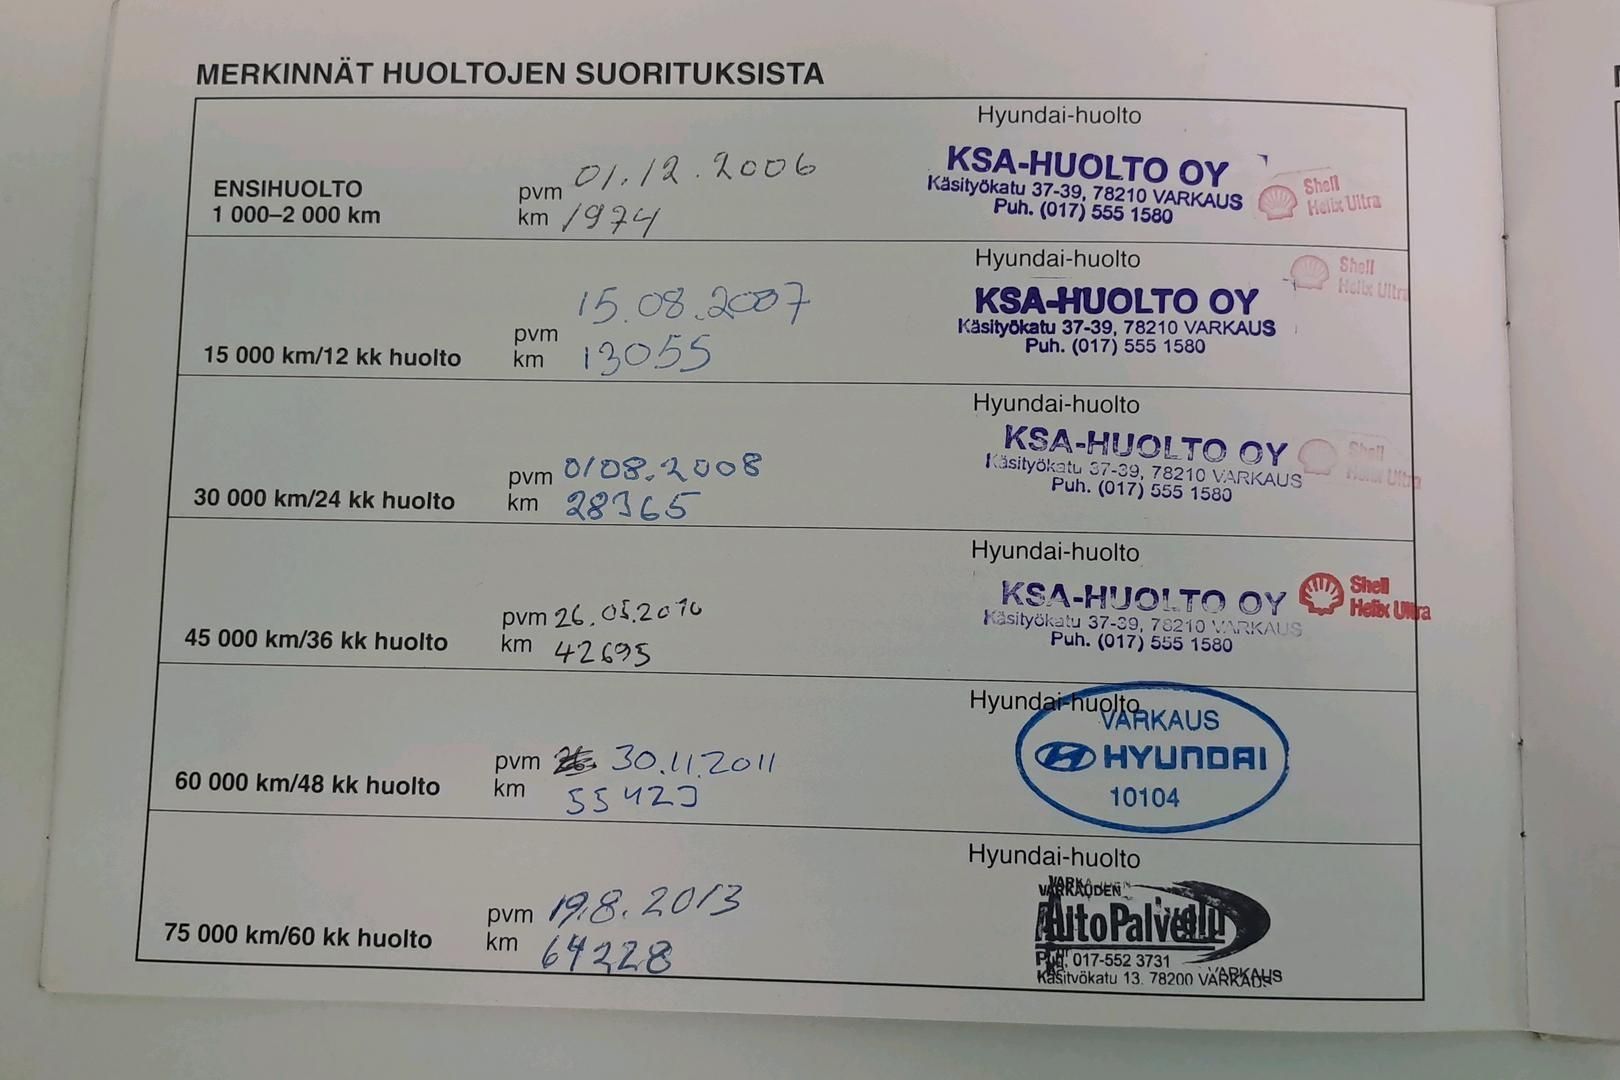 MERKINNÄT HUOLTOJEN SUORITUKSISTA
Hyundai-huolto
ENSIHUOLTO
1 000–2 000 km
pvm 01.12.2006
km 1974
KSA-HUOLTO OY
Käsityökatu 37-39, 78210 VARKAUS
Puh. (017) 555 1580
Shell
Helix Ultra
Hyundai-huolto
15 000 km/12 kk huolto
pvm 15.08.2007
km 13055
KSA-HUOLTO OY
Käsityökatu 37-39, 78210 VARKAUS
Puh. (017) 555 1580
Shell
Helix Ultra
Hyundai-huolto
30 000 km/24 kk huolto
pvm 0108.2008
km 28365
KSA-HUOLTO OY
Käsityökatu 37-39, 78210 VARKAUS
Puh. (017) 555 1580
Shell
Helix Ultra
Hyundai-huolto
45 000 km/36 kk huolto
pvm 26.05.2010
km 42695
KSA-HUOLTO OY
Käsityökatu 37-39, 78210 VARKAUS
Puh. (017) 555 1580
Shell
Helix Ultra
Hyundai-huolto
60 000 km/48 kk huolto
pvm 30.11.2011
km 55423
VARKAUS
HYUNDAI
10104
Hyundai-huolto
75 000 km/60 kk huolto
pvm 19.8.2013
km 64228
VARKAUDEN
AutoPalvelu
Puh. 017-552 3731
Käsityökatu 13. 78200 VARKAUS